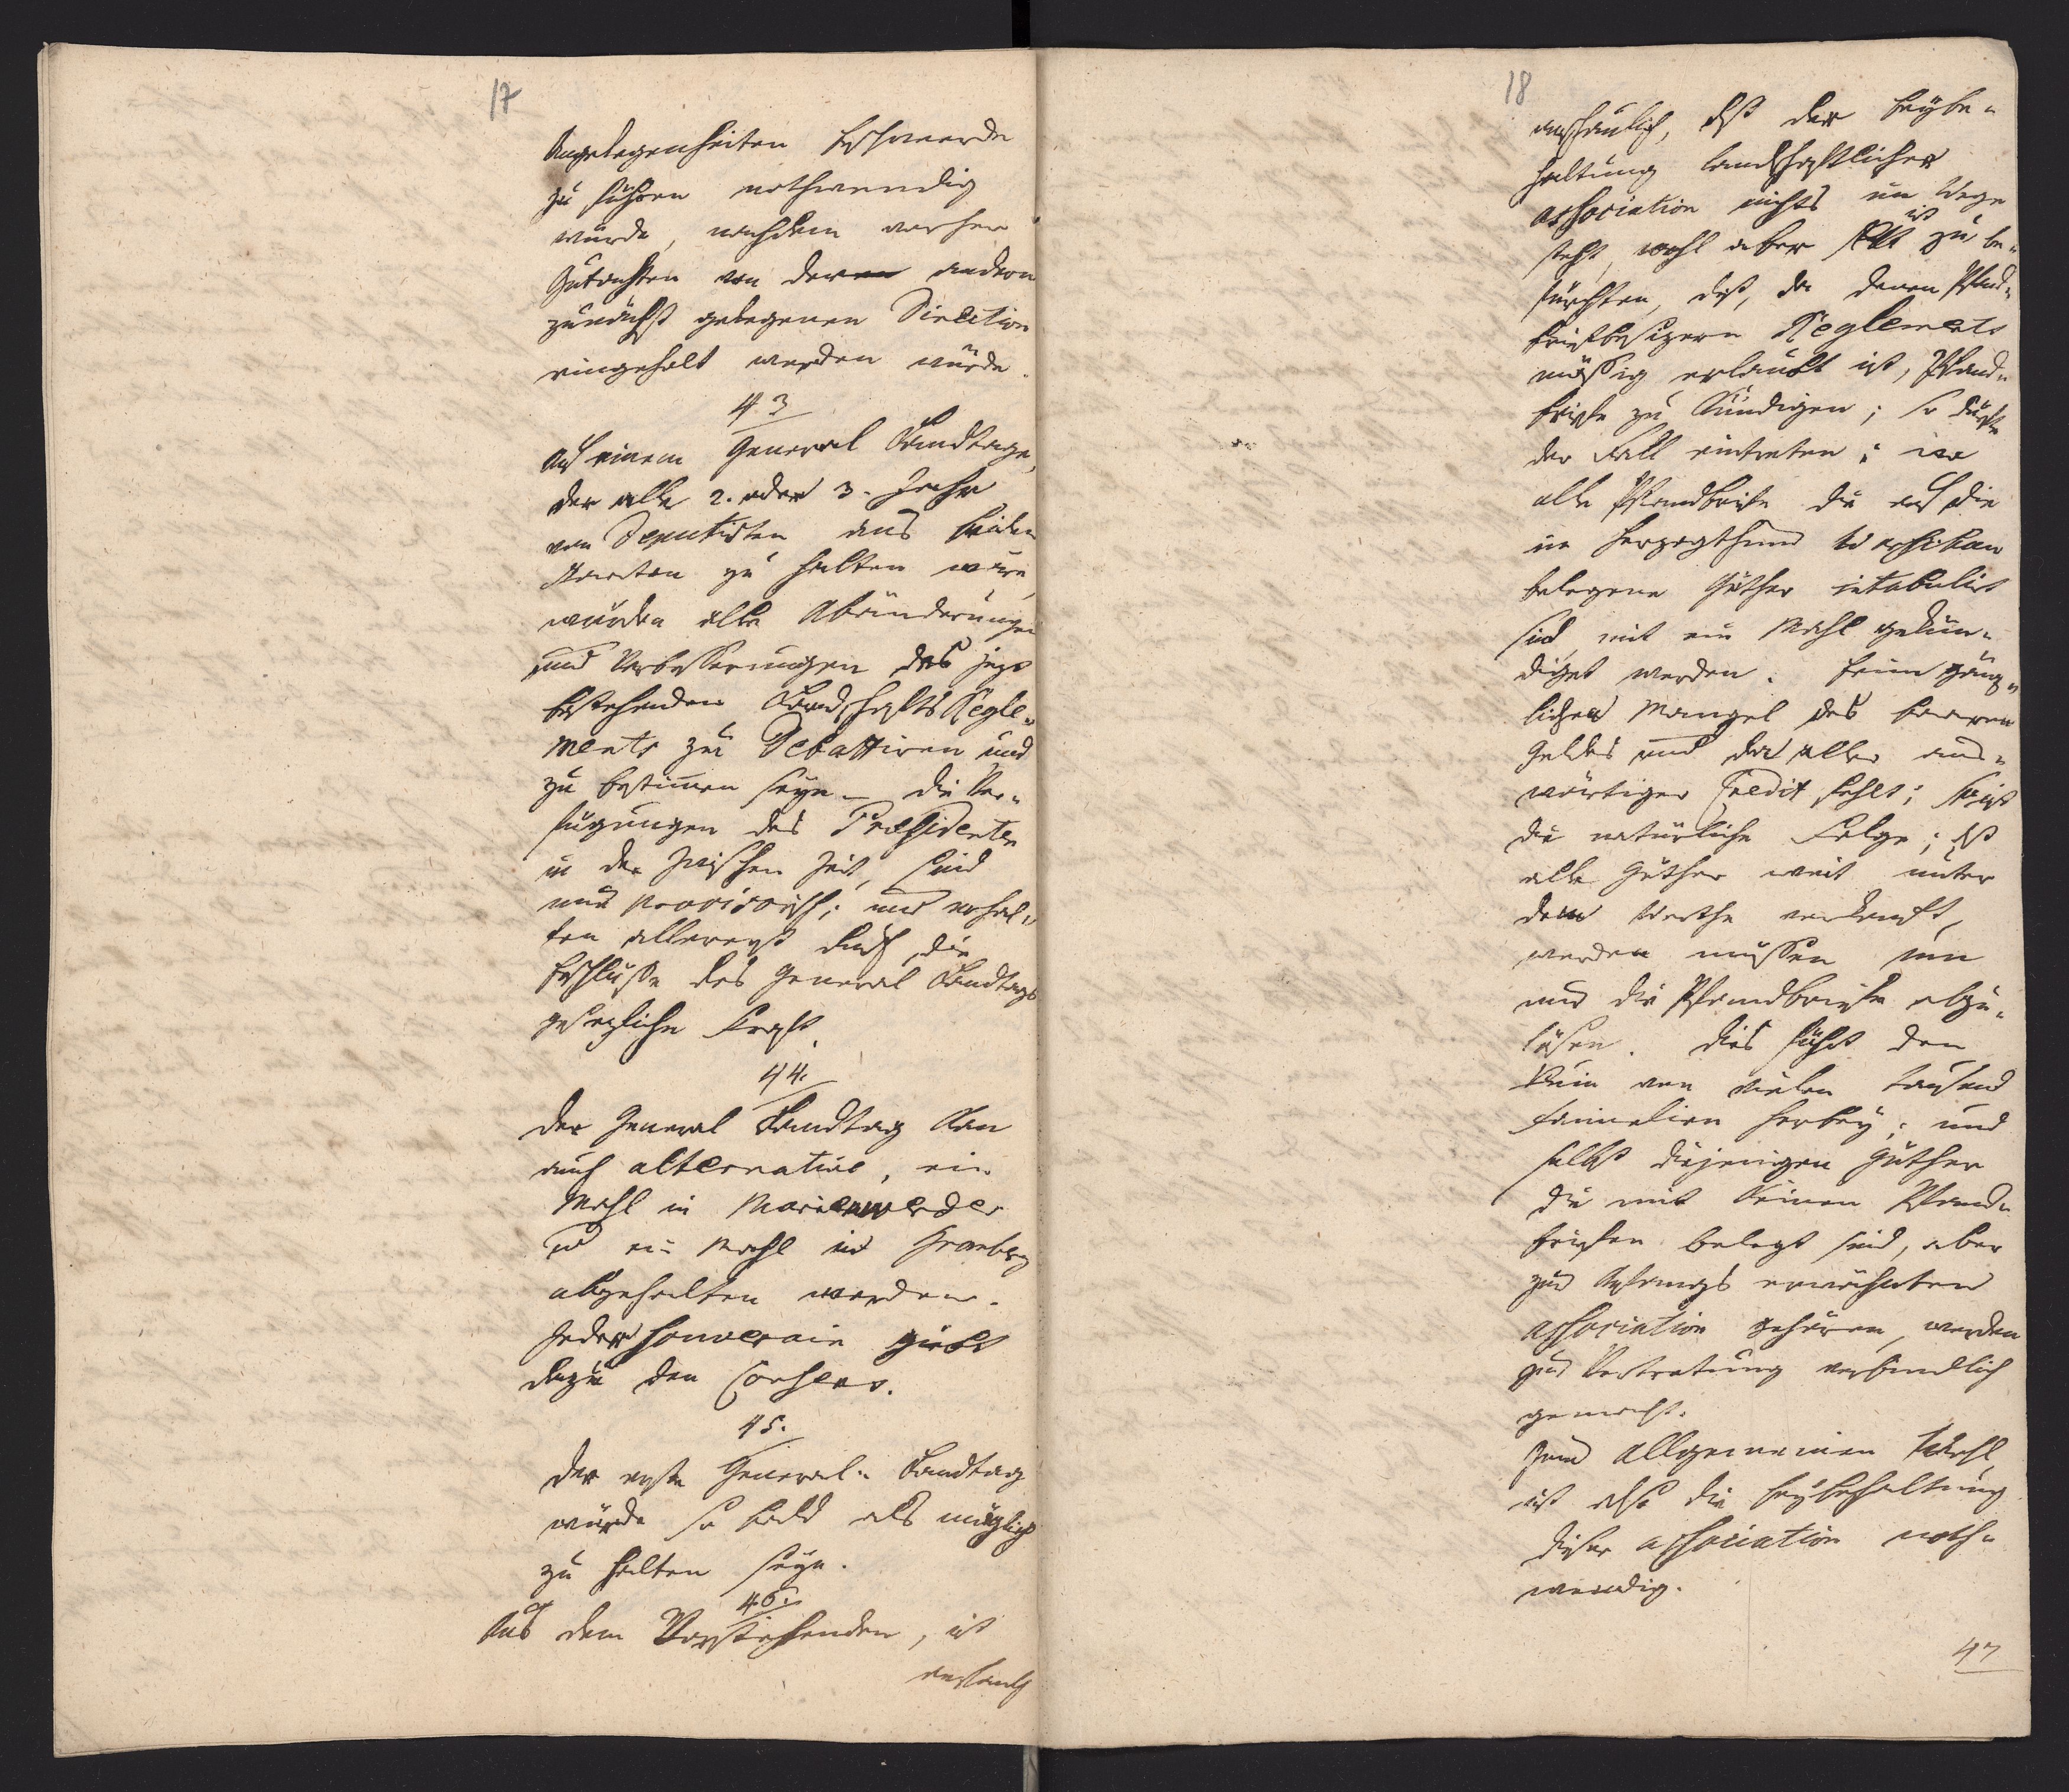 17
Angelegenheiten Beschwerde
zu führen nothwendig
würde, nachdem vorher
Gutachten von der andern
zunächst gelegenen Direction
eingeholt werden würde.
43
Auf einem General Landtage,
der alle 2. oder 3. Jahr
von Deputirten aus beiden
Staaten zu halten wäre,
würden alle Abänderungen
und Verbesserungen des jezo
bestehenden Landschafts Regle-
ments zu Debattiren und
zu bestimen seyn – die Ver-
fügungen des Præsidenten
in der Zwischen Zeit, sind
nur provisorisch; und erhal-
ten allererst durch die
Beschlüsse des General Landtags
gesezliche Kraft.
44.
Der General Landtag kan
auch alternative, ein
Mahl in Marienwerder
und ein Mahl in
abgehalten werden.
Jeder Souverain giebt
dazu den Consens.
45.
Der erste General-Landtag
würde so bald als möglich
zu halten seyn.
46.
Aus dem Vorstehenden, ist
anschaul
18
anschaulich, daß der Beybe-
haltung landschaftlicher
association nichts im Wege
steht, wohl aber ist zu be-
fürchten, daß, da denen Pfand-
briefbesizern Reglements
mäßig erlaubt ist, Pfand-
briefe zu kündigen; so dürfte
der Fall eintreten; wo
alle Pfandbriefe die auf die
im Herzogthum Warschau
belegene Güther intabulirt
sind, mit ein Mahl gekün-
diget werden. Beim gänz-
lichen Mangel des baaren
Geldes und da aller aus-
wärtiger Credit fehlt; ist
die natürliche Folge; daß
alle Güther weit unter
dem Werthe verkauft,
werden müssen um
nur die Pfandbriefe abzu-
lösen. Dies führt den
Ruin von vielen tausend
Familien herbey; und
selbst diejenigen Güther
die mit keinen Pfand-
briefen belegt sind, aber
zur Anfangs erwähnten
association gehören, werden
zur Vertretung verbindlich
gemacht.
Zum allgemeinen Wohl
ist also die Beybehaltung
dieser association noth-
wendig.
47